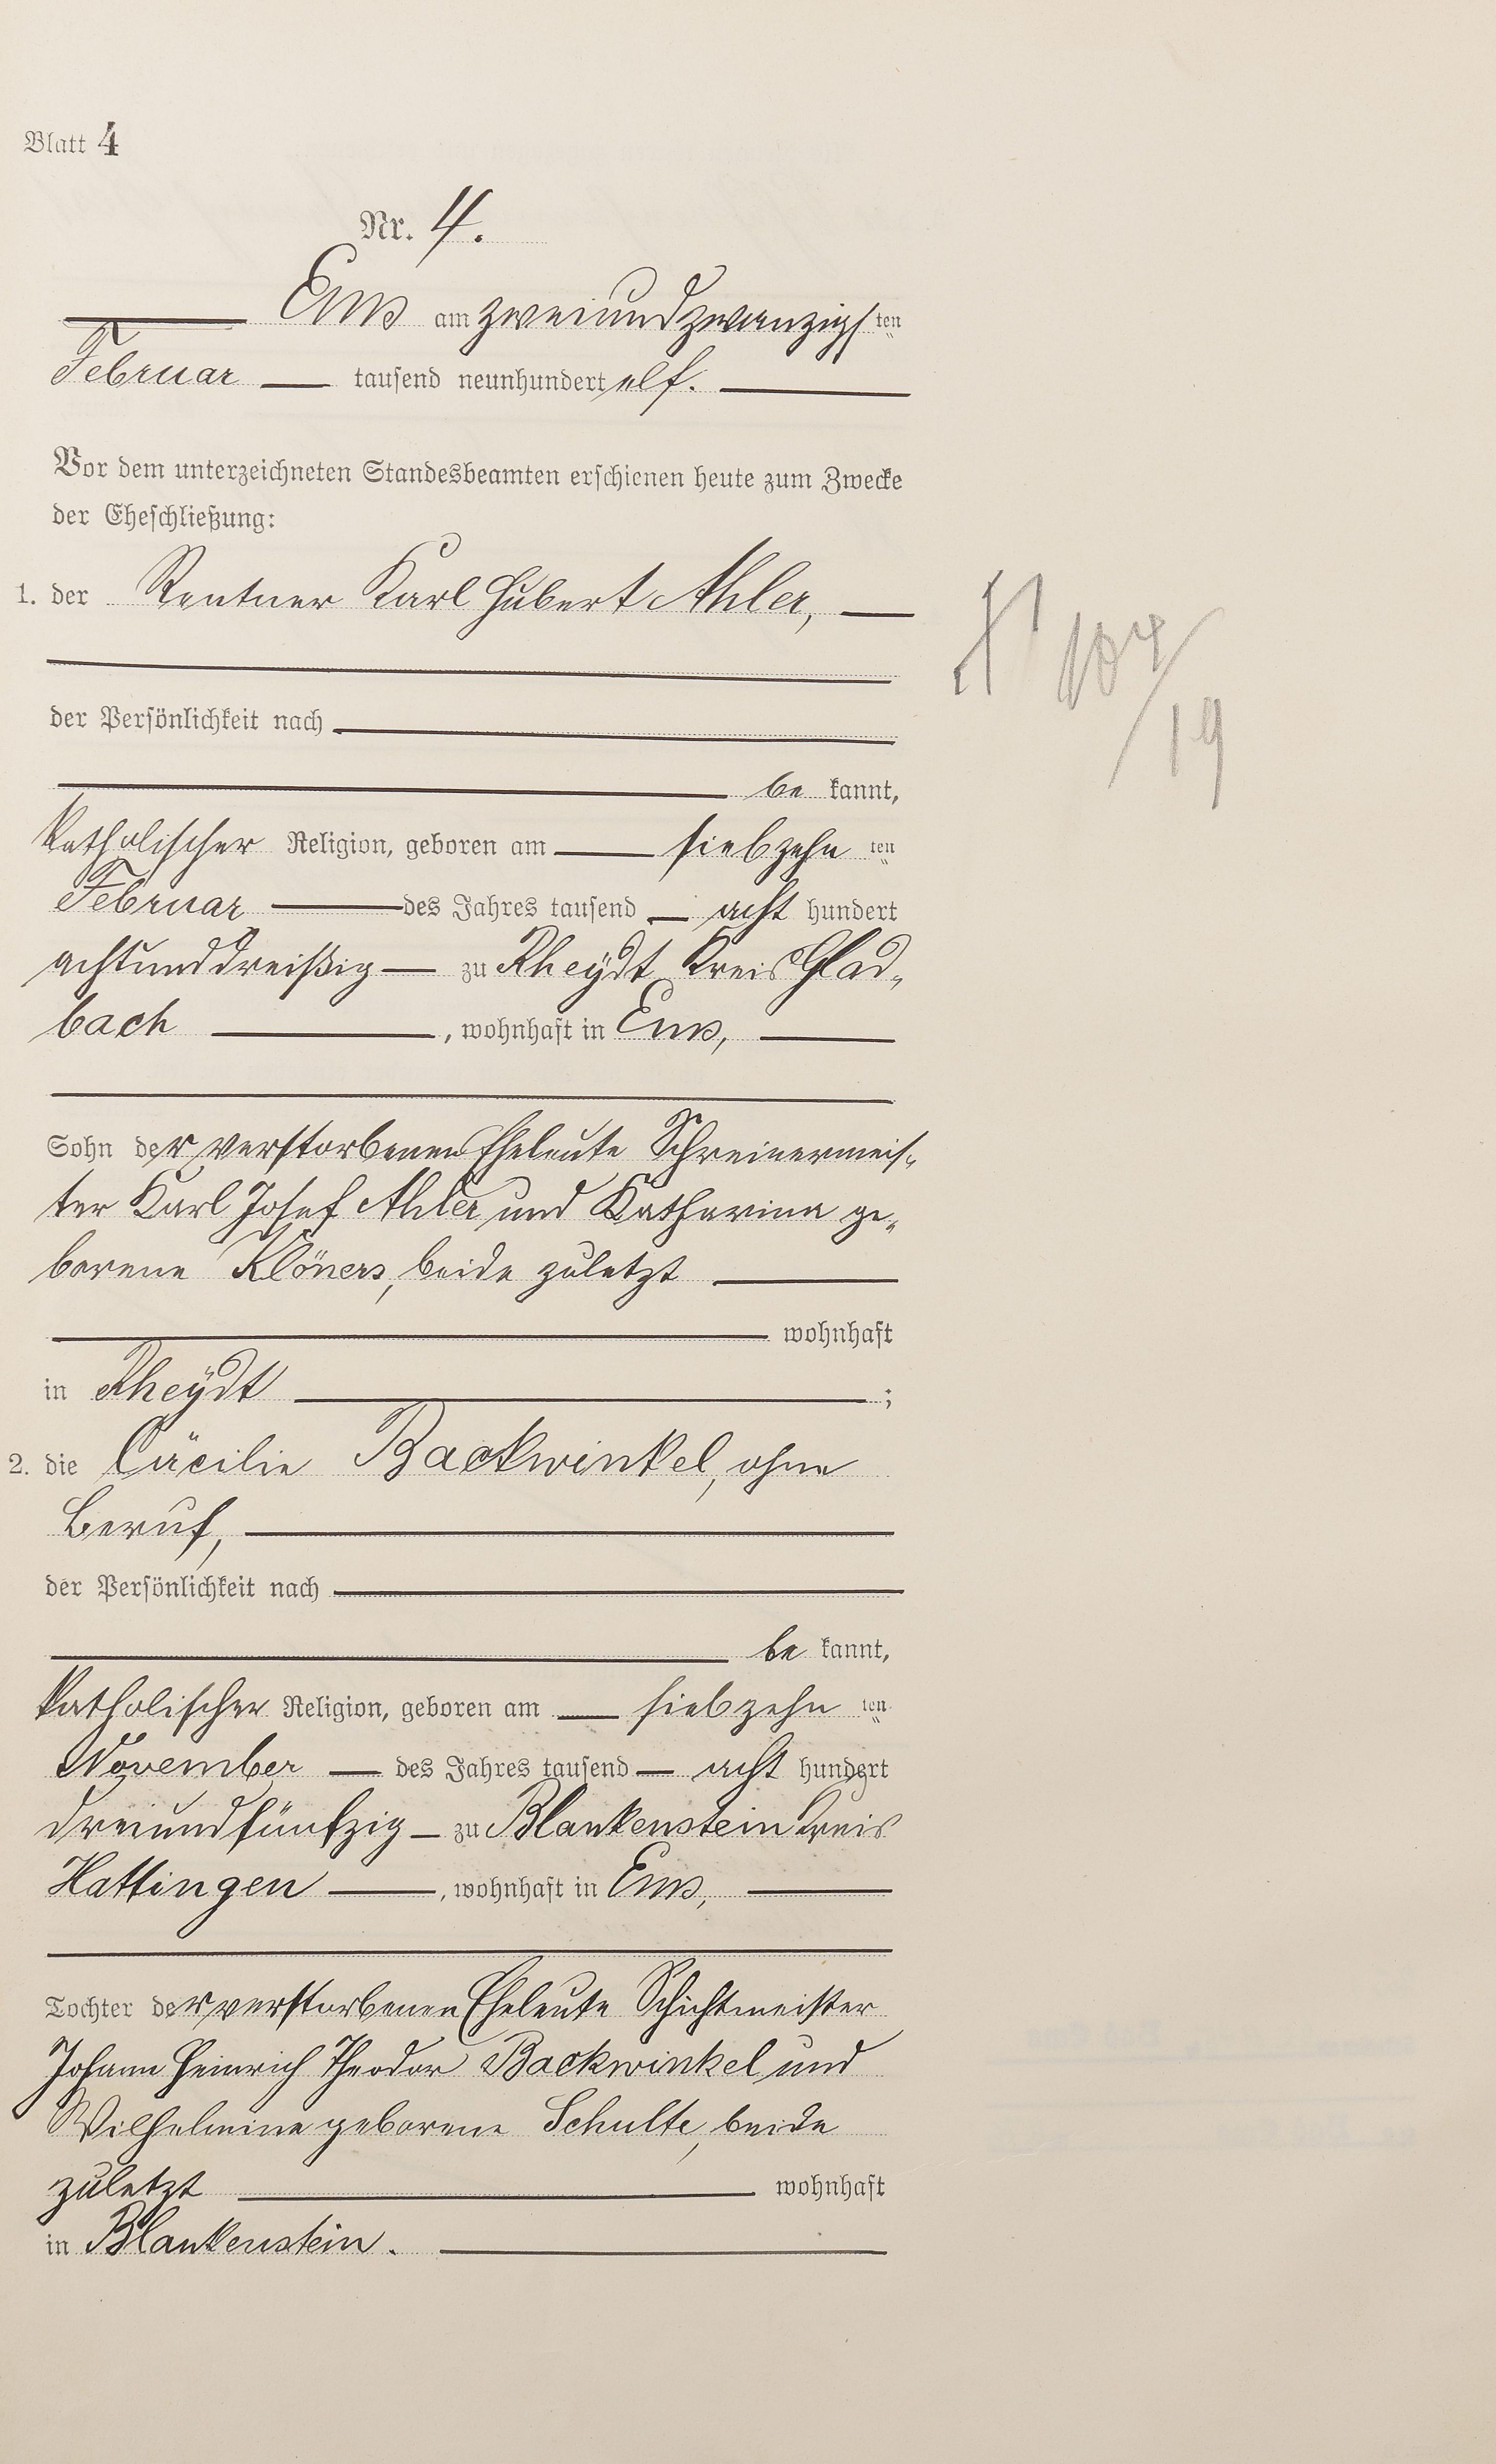 Blatt 4
Nr. 4.
Ems am zweiundzwanzigsten
Februar — tausend neunhundert elf. —
Vor dem unterzeichneten Standesbeamten erschienen heute zum Zwecke
der Eheschließung:
1. der Rentner Karl Hubert Ahler, —
der Persönlichkeit nach —
be kannt,
katholischer Religion, geboren am — siebzehn ten
Februar — des Jahres tausend — acht hundert
achtunddreißig — zu Rheydt Kreis Glad-
bach —, wohnhaft in Ems, —
Sohn der verstorbenen Eheleute Schreinermeis-
ter Karl Josef Ahler und Katharina ge-
borene Klöners, beide zuletzt —
wohnhaft
in Rheydt — ;
2. die Cäcilie Backwinkel, ohne
Beruf, —
der Persönlichkeit nach —
be kannt,
katholischer Religion, geboren am — siebzehn ten
November — des Jahres tausend — acht hundert
dreiundfünfzig — zu Blankenstein Kreis
Hattingen —, wohnhaft in Ems, —
Tochter der verstorbenen Eheleute Schichtmeister
Johann Heinrich Theodor Backwinkel und
Wilhelmine geborene Schulte, beide
zuletzt — wohnhaft
in Blankenstein. —
19